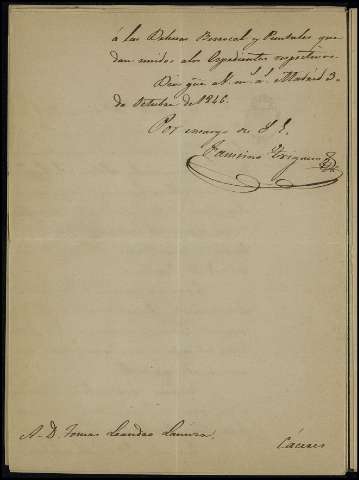 á las Dehesas Berrocal y Puntales que-
dan unidos a los Expedientes respectivos.
Dios gūe a V. m.s a.s Madrid 3
de Octubre de 1846.
Por encargo de S. E.
A D. Tomas Leandro
Cáceres